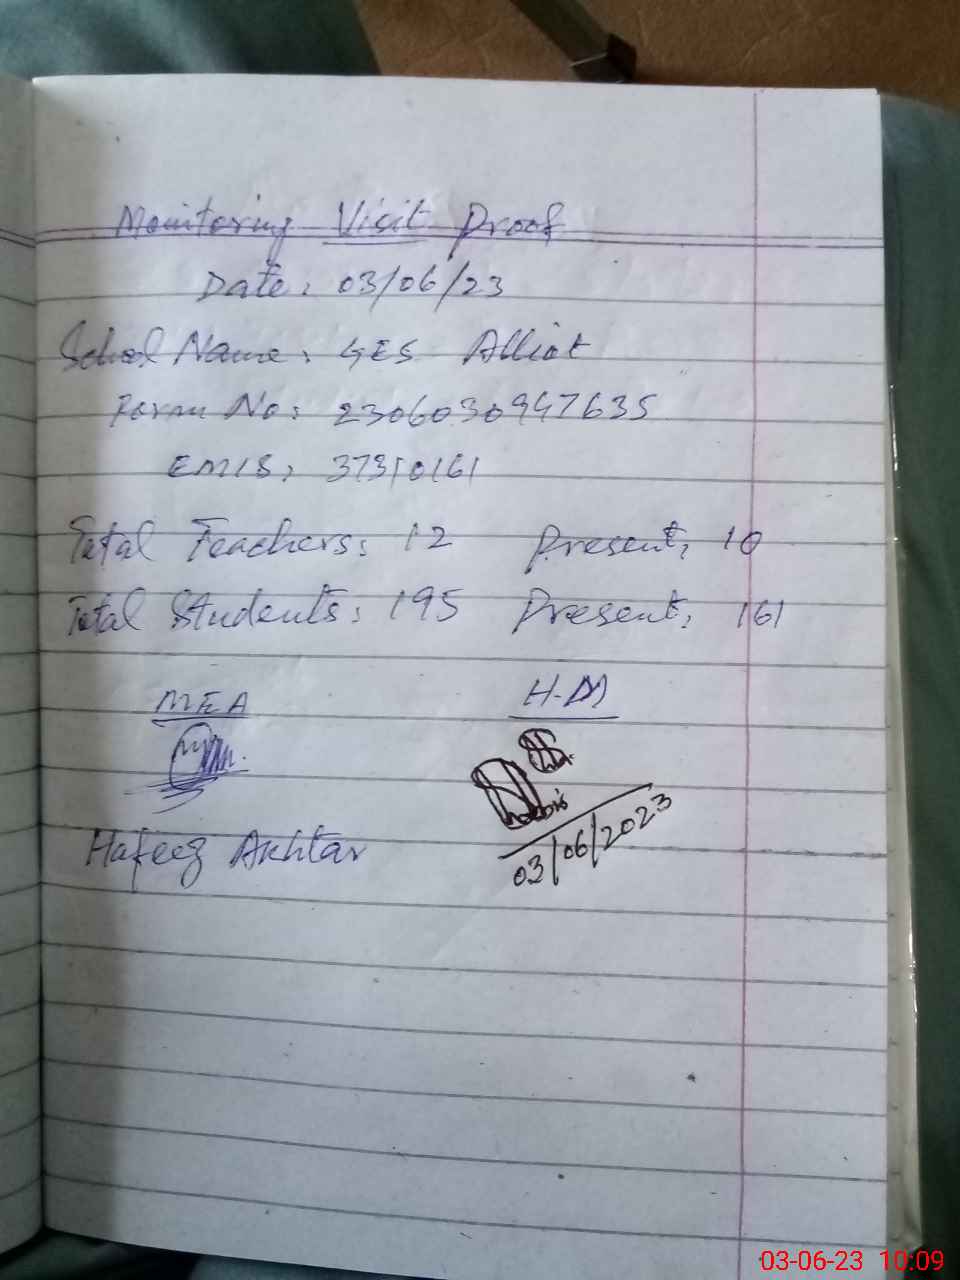 Monitoring Visit Proof
Date: 03/06/23
School Name: GES Alliot
Form No: 2306030947635
EMIS: 37310161
Total Teachers: 12 Present: 10
Total Students: 195 Present: 161
MEA H-M
Hafeez Akhtar
03/06/2023
03-06-23 10:09